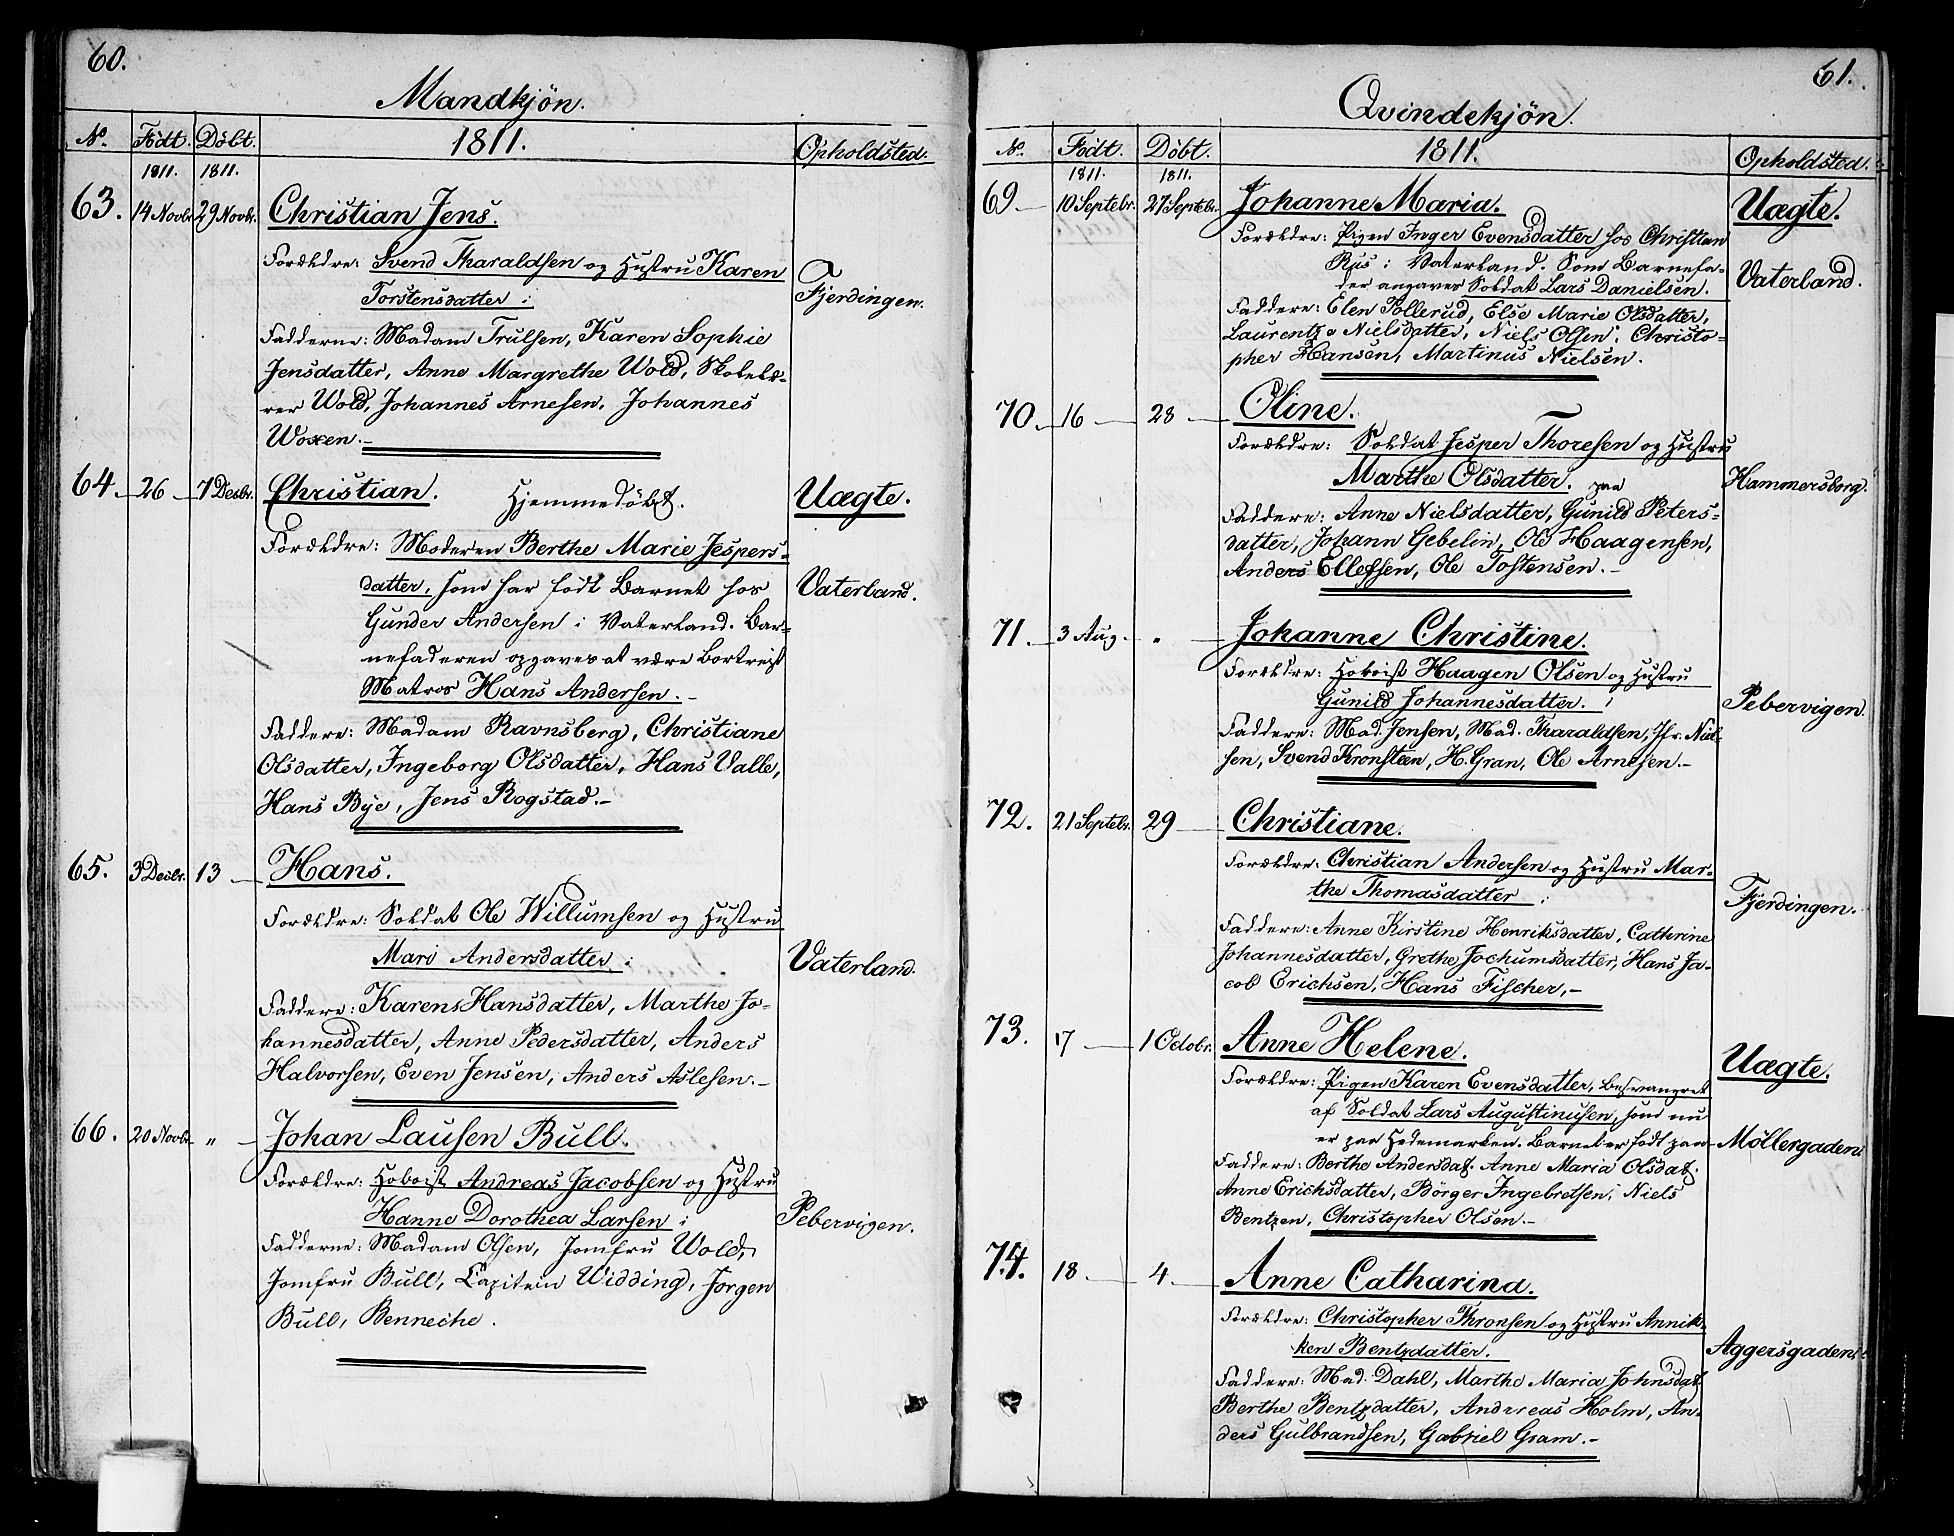 60.
Mandkjön.
No. Födt. Döbt. 1811. Opholdsted.
1811. 1811.
63. 14 Novbr. 29 Novbr. Christian Jens.
Forældre: Svend Tharaldsen og Hustru Karen
Torstensdatter i
Fjerdingen.
Fadderne: Madam Trulsen, Karen Sophie
Jensdatter, Anne Margrethe Wold, Skolelæ-
rer Wold, Johannes Arnesen, Johannes
Woxen.–
64. 26 – 7 Decbr. Christian. Hjemmedöbt. Uægte.
Forældre: Moderen Berthe Marie Jespers-
datter, som har födt Barnet hos
Vaterland.
Gunder Andersen i Vaterland. Bar-
nefaderen opgaves at være bortreist
Matros Hans Andersen.–
Faddere: Madam Ravnsberg, Christiane
Olsdatter, Ingeborg Olsdatter, Hans Valle,
Hans Bye, Jens Rogstad.–
65. 3 Decbr. 13 – Hans.
Forældre: Soldat Ole Willumsen og Hustru
Mari Andersdatter i
Vaterland.
Faddere: Karen Hansdatter, Marthe Jo-
hannesdatter, Anne Pedersdatter, Anders
Halvorsen, Even Jensen, Anders Aslesen.–
66. 20 Novbr. „ – Johan Lausen Bull.
Forældre: Hoboist Andreas Jacobsen og Hustru
Hanne Dorothea Larsen i
Pebervigen.
Fadderne: Madam Olsen, Jomfru Wold,
Jomfru Bull, Capitein Widding, Jörgen
Bull, Benneche.
61.
Qvindekjön.
No. Födt. Döbt. 1811. Opholdsted.
1811. 1811.
69 – 10 Septebr. 27 Septebr. Johanne Maria. Uægte.
Forældre: Pigen Inger Evensdatter hos Christian
Rus i Vaterland. Som Barnefa-
Vaterland.
der angaves Soldat Lars Danielsen.
Faddere: Elen Sollerud, Else Marie Olsdatter,
Laurentze Nielsdatter, Niels Olsen, Christo-
pher Hansen, Martinus Nielsen.
70. – 16 – 28 – Oline.
Forældre: Soldat Jesper Thoresen og Hustru
Marthe Olsdatter. paa
Hammersborg.
Faddere: Anne Nielsdatter, Gunild Peters-
datter, Johann Gebelin, Ole Haagensen,
Anders Ellefsen, Ole Tostensen.–
71. – 3 Aug. „ – Johanne Christine.
Forældre: Hoboist Haagen Olsen og Hustru
Gunild Johannesdatter. i
Pebervigen.
Faddere: Mad. Jensen, Mad. Tharaldsen, Jfr. Niel-
sen, Svend Kronsteen, H. Gran, Ole Arnesen.–
72. 21 Septebr. 29 – Christiane.
Forældre: Christian Andersen og Hustru Mar-
the Thomasdatter i
Fjerdingen.
Faddere: Anne Kirstine Henriksdatter, Cathrine
Johannesdatter, Grethe Jochumsdatter, Hans Ja-
cob Erichsen, Hans Fischer.–
73. 17 – 1 Octobr. Anne Helene. Uægte.
Forældre: Pigen Karen Evensdatter, besvangret
af Soldat Lars Augustinusen, som nu
er paa Hedemarken. Barnet er födt paa Möllergaden.
Faddere: Berthe Andersdat. Anne Maria Olsdat.
Anne Erichsdatter, Börger Ingebretsen, Niels
Bentzen, Christopher Olsen.–
74. 18 – 4 – Anne Catharina.
Forældre: Christopher Thronsen og Hustru Annik-
ken Bentzdatter.
Aggersgaden.
Faddere: Mad. Dahl, Marthe Maria Johnsdat.
Berthe Bentzdatter, Andreas Holm, An-
ders Gulbrandsen, Gabriel Gram.–